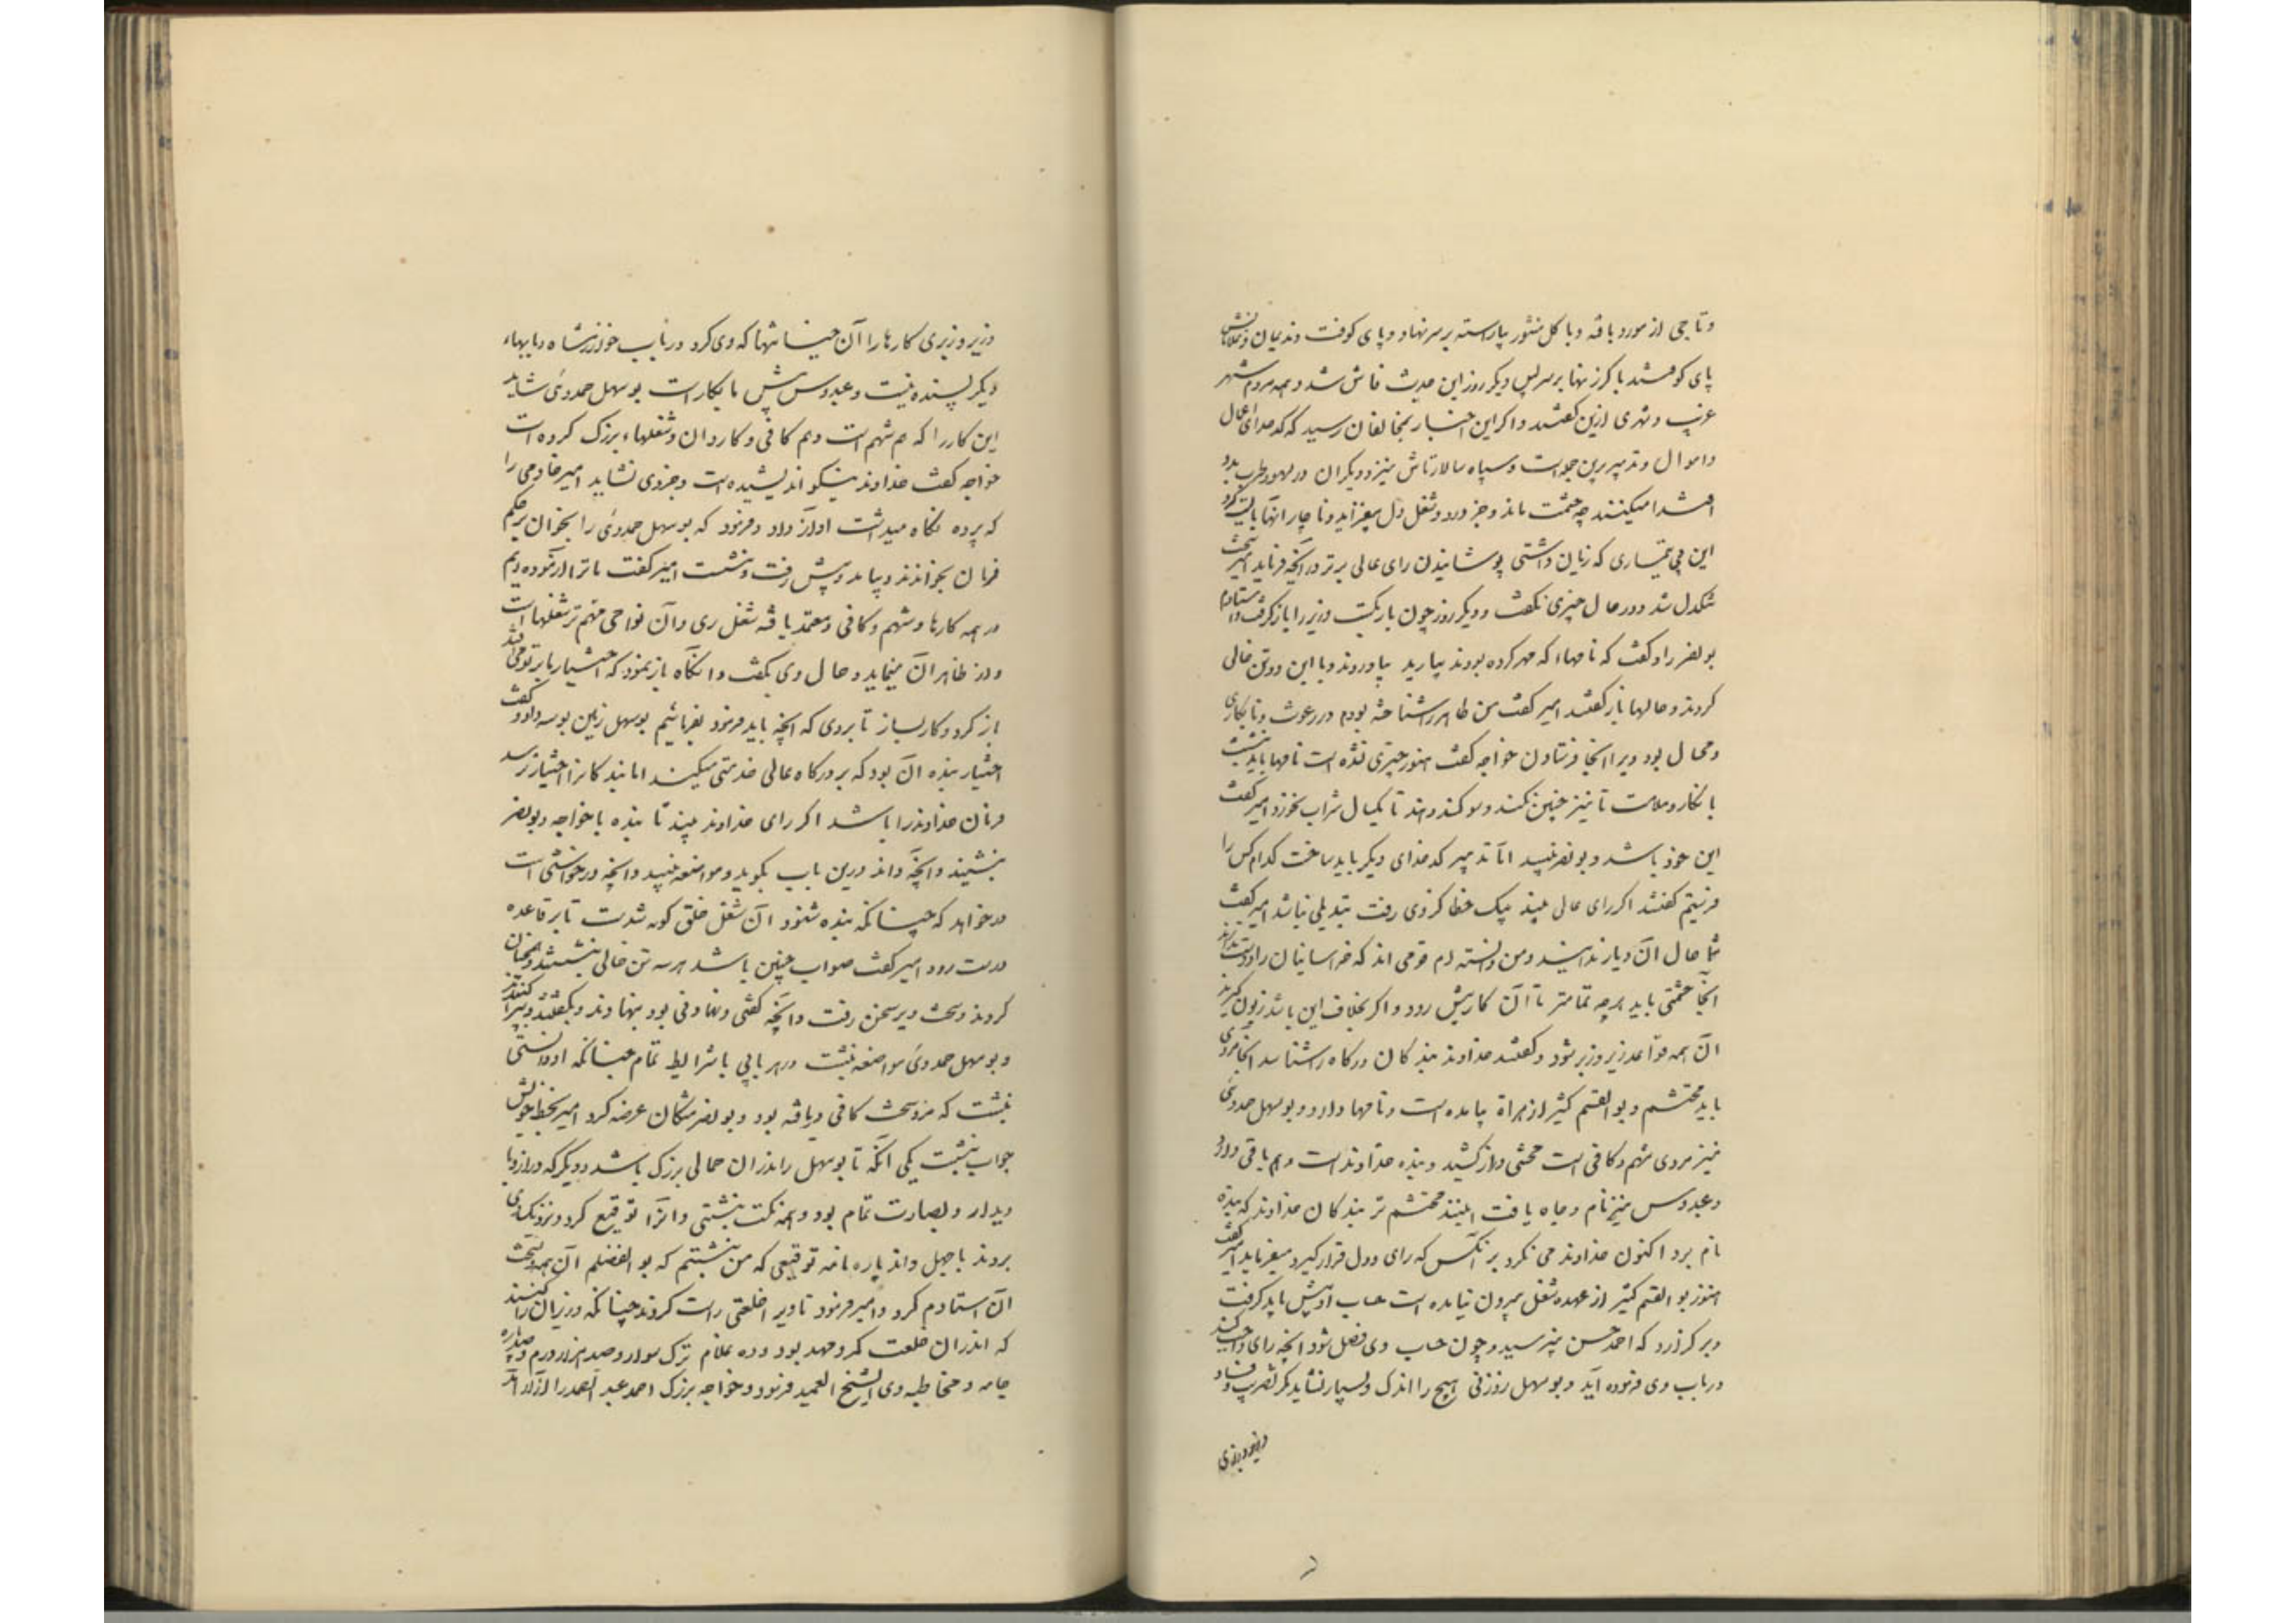 وتاجی از مورد بافته و با کل منثور بیاراسته بر سر نهاد و پای کوفت و ندیمان و غلامانش
پای کوفتند با کرزنها بر سر پس دیکر روز این حدیث فاش شد و همه مردم شهر
غریب و شهری ازین کفتند و اکر این اخبار بمخالفان رسید که کدخدای اعمال
و اموال و تدبیر برین جمله است و سپاه سالار تاش نیز و دیکران در لهو و طرب بدو
اقتدا میکنند چه حشمت ماند و جز درد و شغل دل میفزاید و ناچار انها بایست کرد
این بی تیماری که زیان داشتی پوشانیدن رای عالی برتر در انچه فرماید امیر سخت
تنکدل شد و در حال چیزی نکفت و دیکر روز چون بار بکسست وزیر را باز کرفت و استادم
بونصر را و کفت که نامهاء که مهر کرده بودند بیارید بیاوردند و با این دو تن خالی
کردند و حالها باز کفتند امیر کفت من طاهر را شناخته بودم در رعونت و نابکاری
و محال بود ویرا انجا فرستادن خواجه کفت هنوز چیزی نشده است نامها باید نبشت
بانکار و ملامت تا نیز چنین نکند و سوکند دهند تا یکسال شراب نخورد امیر کفت
این خود باشد و بونصر نبیسد اما تدبیر کدخدای دیکر باید ساخت کدام کس را
فرستیم کفتند اکر رای عالی بیند بیک خطا کز وی رفت تبدیلی نباشد امیر کفت
شما حال آن دیار ندانید و من دانسته ام قومی اند که خراسانیان را دوست ندارند
آنجا حشمتی باید هرچه تمامتر تا آن کار پیش رود و اکر بخلاف این باشد زبون کیرند
آن همه قواعد زیر و زبر شود و کفتند خداوند بندکان درکاه را شناسد انجا مردی
باید محتشم و بوالقسم کثیر از هراة بیامده است و نامها دارد و بوسهل حمدوی
نیز مردی شهم و کافی است محنتی دراز کشید و بنده خداوند است و هم باقی دارد
و عبدوس نیز نام و جاه یافت اینند محتشم تر بندکان خداوند که بنده
نام برد اکنون خداوند می نکرد بر انکس که رای و دل قرار کیرد میفرماید امیر کفت
هنوز بوالقسم کثیر از عهده شغل بیرون نیامده است حساب او پیش باید کرفت
و بر کزارد که احمد حسن بپرسید و چون حساب وی فصل شود انچه رای واجب کند
در باب وی فرموده آید و بوسهل زوزنی هیچ را اندک و بسیار نشاید مکر تضریب و فساد
و زیر و زبری
وزیر و زبری کارها را آن خیانتها که وی کرد در باب خوارزمشاه و بابهاء
دیکر بسنده نیست و عبدوس پیش ما بکار است بوسهل حمدوی شاید
این کار را که هم شهم است و هم کافی و کاردان و شغلهاء بزرک کرده است
خواجه کفت خداوند نیکو اندیشیده است و جز وی نشاید امیر خادمی را
که پرده نکاه میداشت آواز داد و فرمود که بوسهل حمدوی را بخوان بر حکم
فرمان بخواندند و بیامد و پیش رفت و بنشست امیر کفت ما ترا آزموده ایم
در همه کارها و شهم و کافی و معتمد یافته شغل ری و آن نواحی مهم تر شغلها است
و از طاهر آن مینماید و حال وی بکفت و انکاه باز نمود که اختیار ما بر تو می افتد
باز کرد و کار بساز تا بروی که انچه باید فرمود بفرمائیم بوسهل زمین بوسه داد و کفت
اختیار بنده آن بود که بر درکاه عالی خدمتی میکند اما بندکانرا اختیار نرسد
فرمان خداوند را باشد اکر رای خداوند بیند تا بنده با خواجه و بونصر
بنشیند و انچه داند درین باب بکوید و مواضعه نبیسد و انچه درخواستنی است
درخواهد که چنانکه بنده شنود آن شغل خلق کونه شدست تا بر قاعده
درست رود امیر کفت صواب چنین باشد هر سه تن خالی بنشستند و همچنان
کردند و سخت دیر سخن رفت و آنچه کفتنی و نهادنی بود بنهادند و بکفتند و بپراکندند
و بوسهل حمدوی مواضعه نبشت در هر بابی با شرایط تمام چنانکه او دانستی
نبشت که مردی سخت کافی و یافته بود و بونصر مشکان عرضه کرد امیر بخط خویش
جواب نبشت یکی آنکه تا بوسهل را اندر ان جمالی بزرک باشد و دیکر که در آن روبا
دیدار و بصارت تمام بود و همه نکت نبشتی و آنرا توقیع کرد و نزدیک وی
بردند با چهل و اند پاره نامه توقیعی که من نبشتم که بوالفضلم آن همه و نسخت
آن استادم کرد و امیر فرمود تا ویرا خلعتی راست کردند چنانکه وزیران را کنند
که اندران خلعت کمر و مهد بود و ده غلام ترک سوار و صد هزار درم و صد پاره
جامه و مخاطبه وی الشیخ العمید فرمود و خواجه بزرک احمد عبدالصمد را ازان آمد